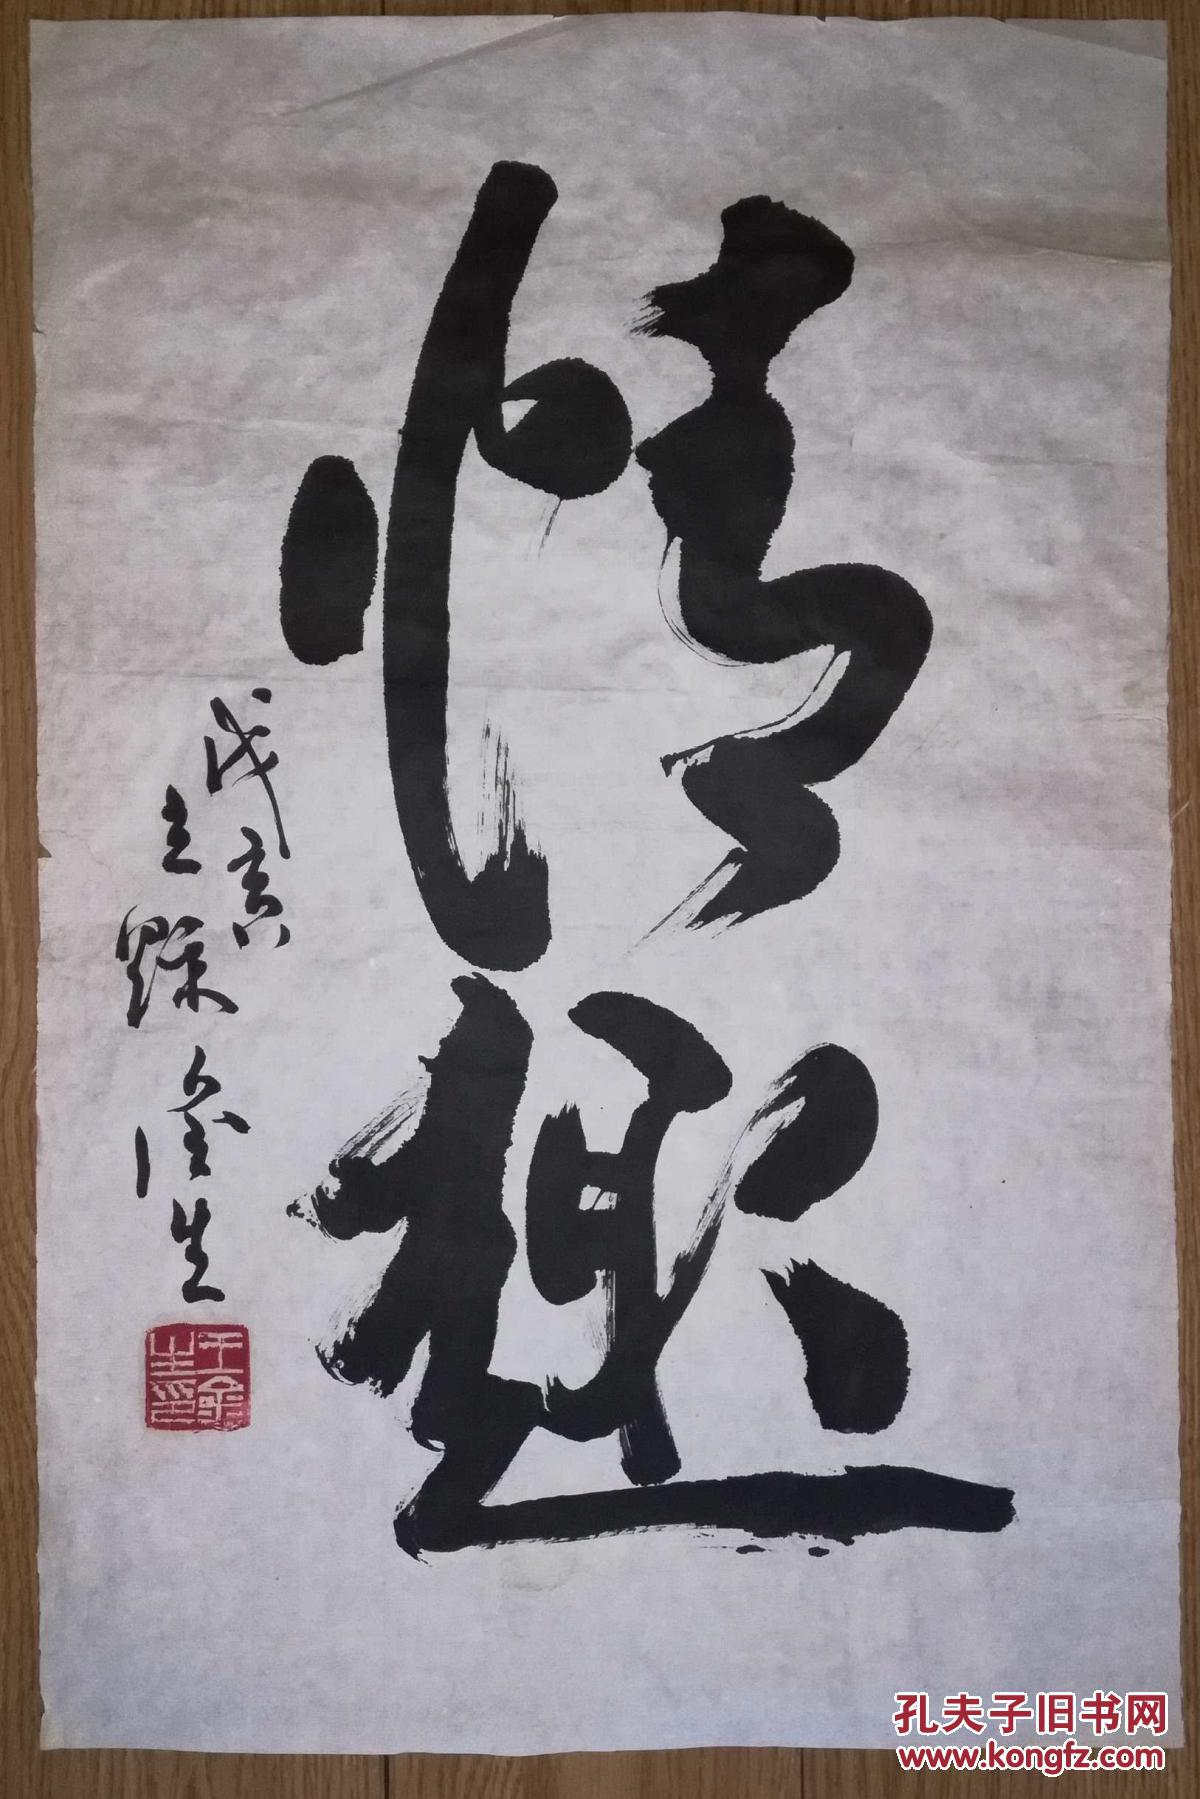 情趣
戊寅
立夥金生
王金生印
孔夫子旧书网
www.kongfz.com